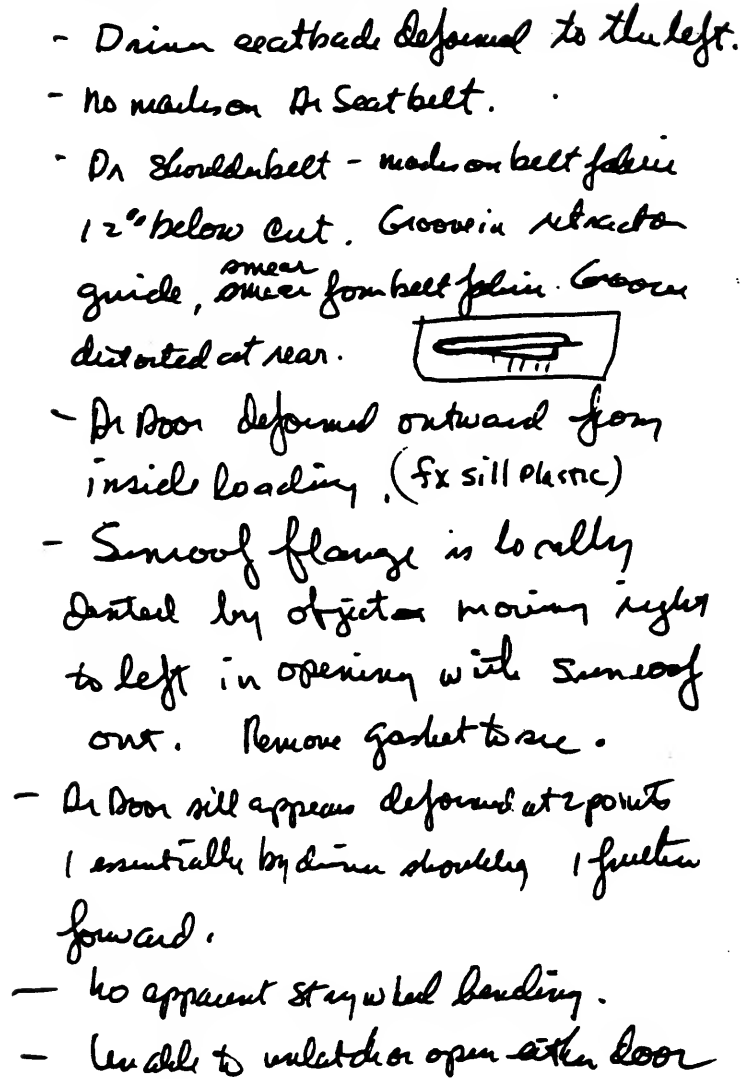 - Driver seatback deformed to the left.
- No marks on Dr Seatbelt.
- Dr Shoulderbelt - marks on belt fabric
12" below cut. Groove in retractor
guide, smear smear from belt fabric. Groove
distorted at rear.
- Dr Door deformed outward from
inside loading. (fx sill plastic)
- Sunroof flange is locally
dented by object moving right
to left in opening with sunroof
out. Remove gasket to see.
- Dr Door sill appears deformed at 2 points
1 essentially by driver shoulder, 1 further
forward.
- No apparent strg wheel bending.
- Unable to unlatch or open either door